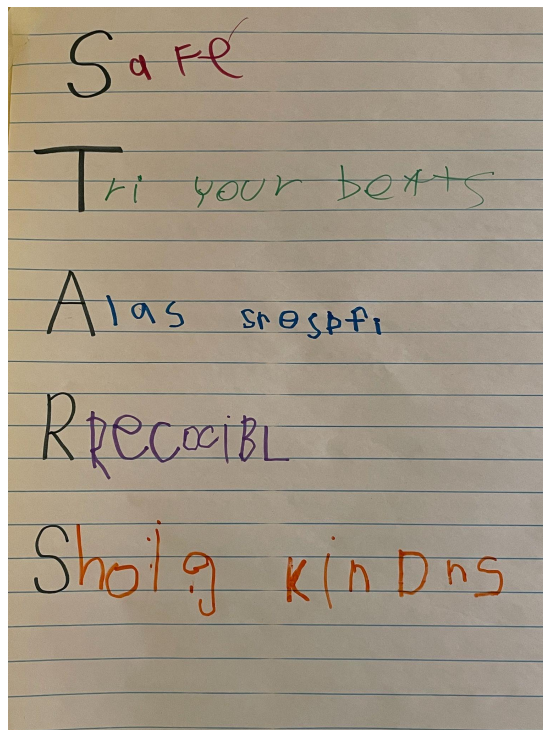 Safe
Tri your bexts
Alas srespfi
RRecociBL
Shoilg kinDns